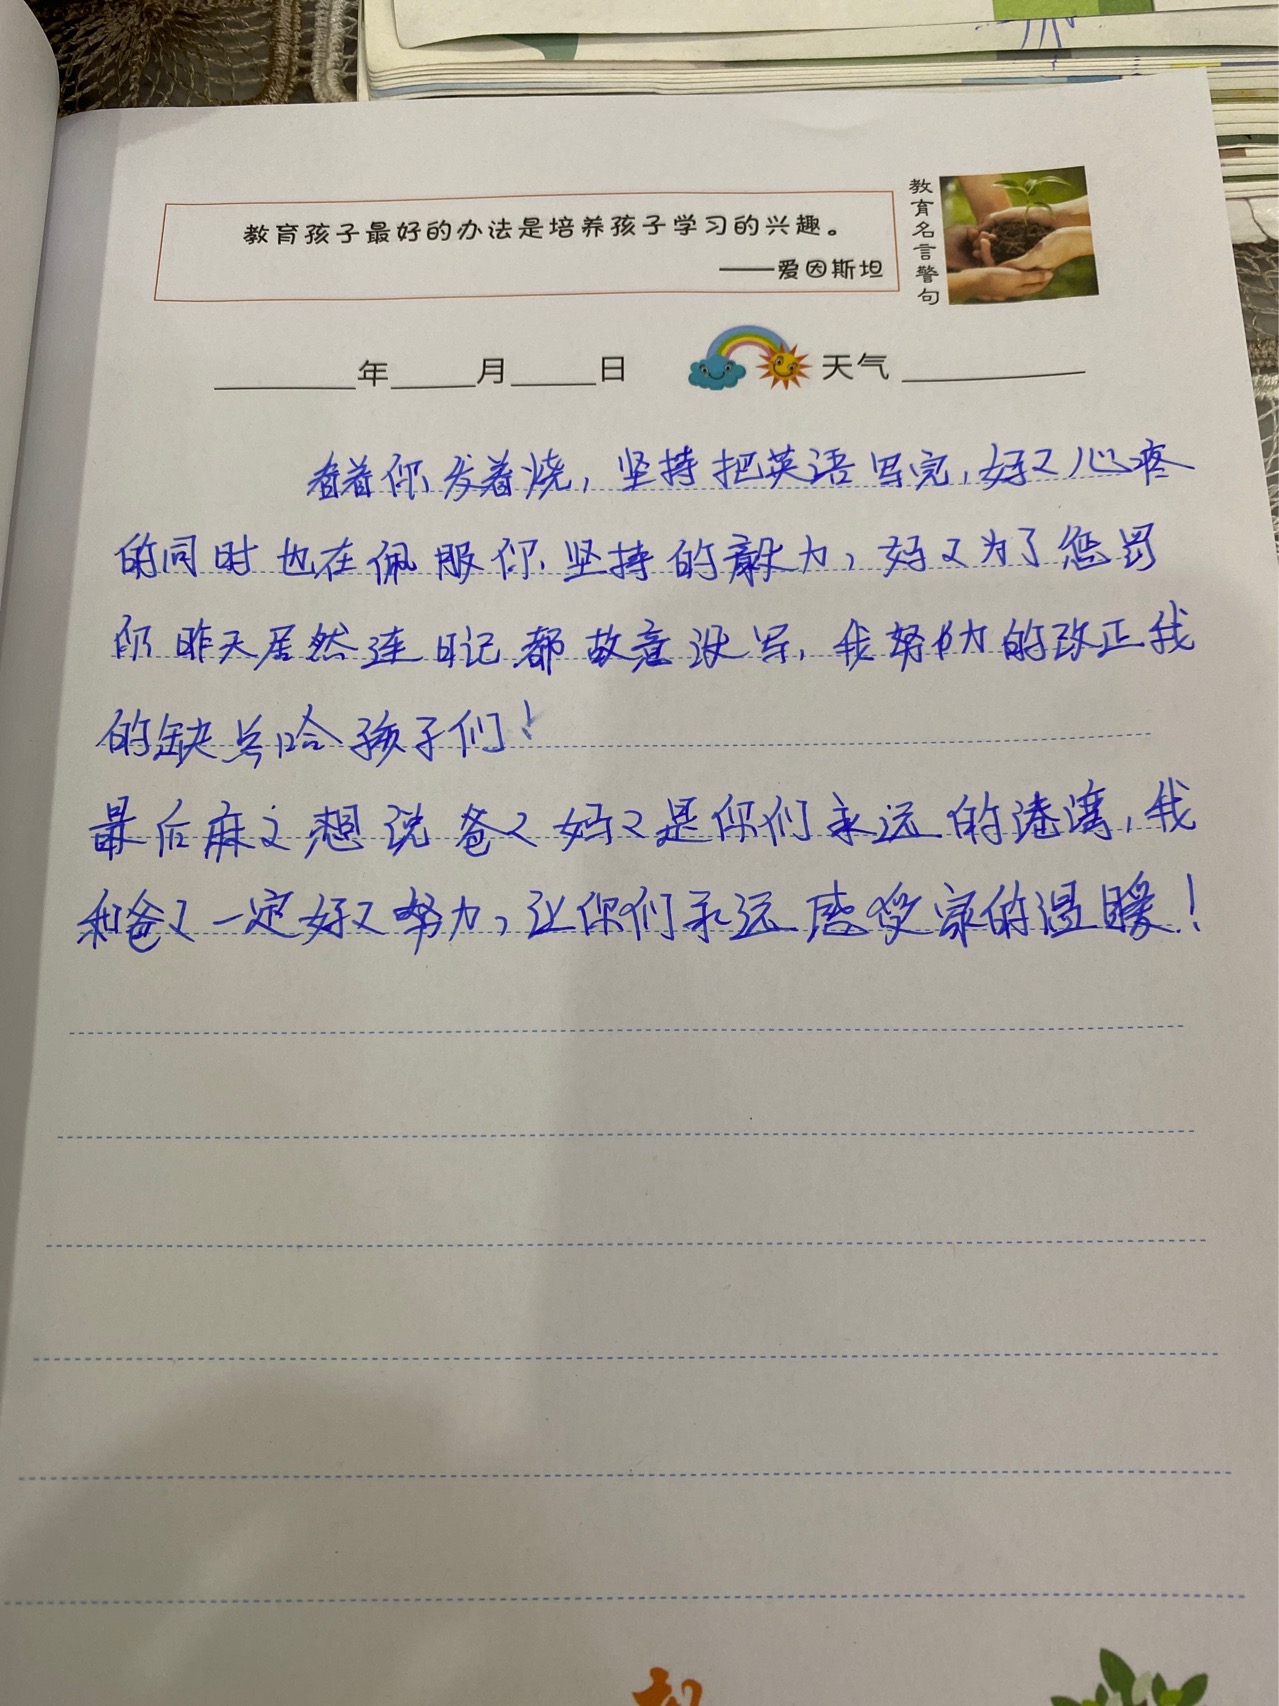 教育孩子最好的办法是培养孩子学习的兴趣。
——爱因斯坦
教育名言警句
年 月 日 天气
看着你发着烧，坚持把英语写完，妈々心疼
的同时也在佩服你坚持的毅力，妈々为了惩罚
你昨天居然连日记都故意没写，我努力的改正我
的缺点哈孩子们！
最后麻々想说爸々妈々是你们永远的港湾，我
和爸々一定好々努力，让你们永远感受家的温暖！